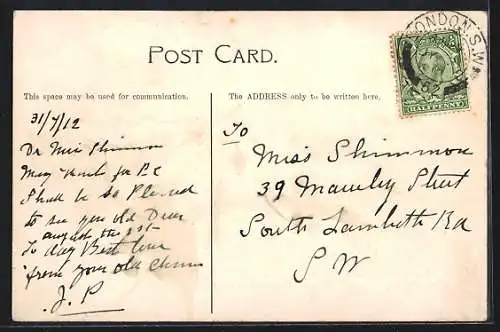 POST CARD.
This space may be used for communication.
The ADDRESS only to be written here.
LONDON.S.W
HALFPENNY
31/7/12
Dr Miss Shimmon
Many Thanks for P C
Shall be so Pleased
to see you old Dear
august the 1st
To day Best love
from your old Chum
J. P
To
Miss Shimmon
39 Street
South Lambeth Rd
S W